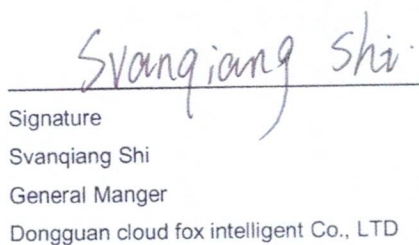 Svanqiang Shi.
Signature
Svanqiang Shi
General Manger
Dongguan cloud fox intelligent Co., LTD